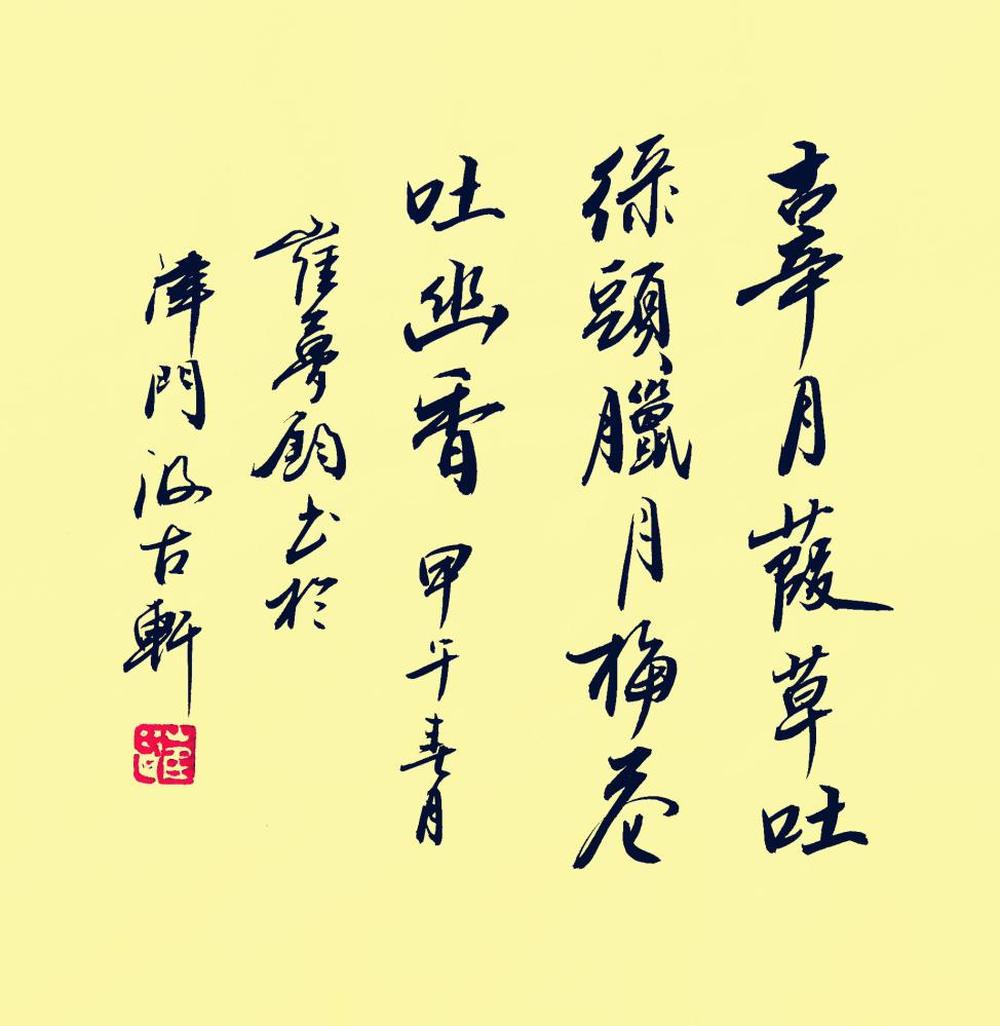 辜月葭草吐
綠頭臘月梅花
吐幽香 甲午春月
崔夢书於
津門汲古軒